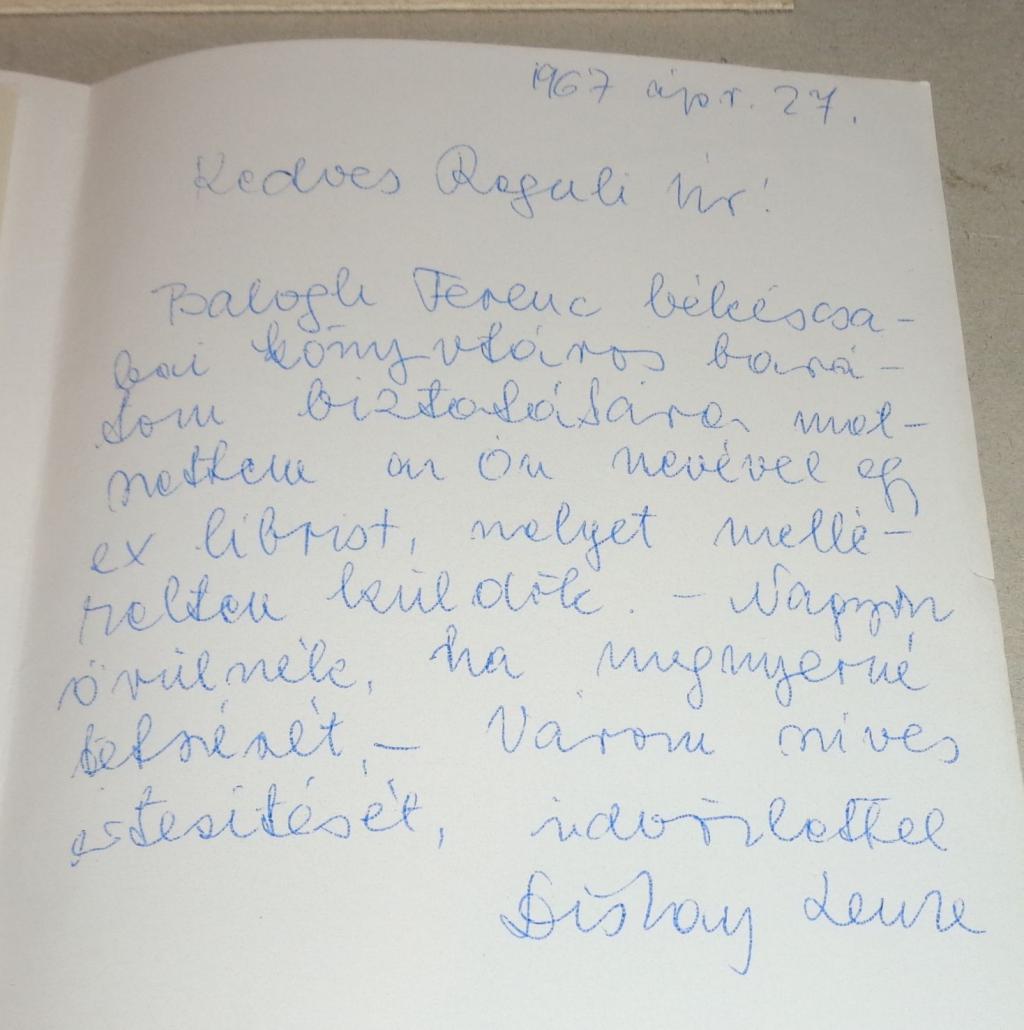 1967 ápr. 27.
Kedves Reguli Úr!
Balogh Ferenc békéscsa-
bai könyvtáros bará-
tom biztatására met-
szettem az Ön nevével egy
ex librist, melyet mellé-
kelten küldök. - Nagyon
örülnék, ha megnyerné
tetszését, - Várom szíves
értesítését, üdvözlettel
Diskay Lenke